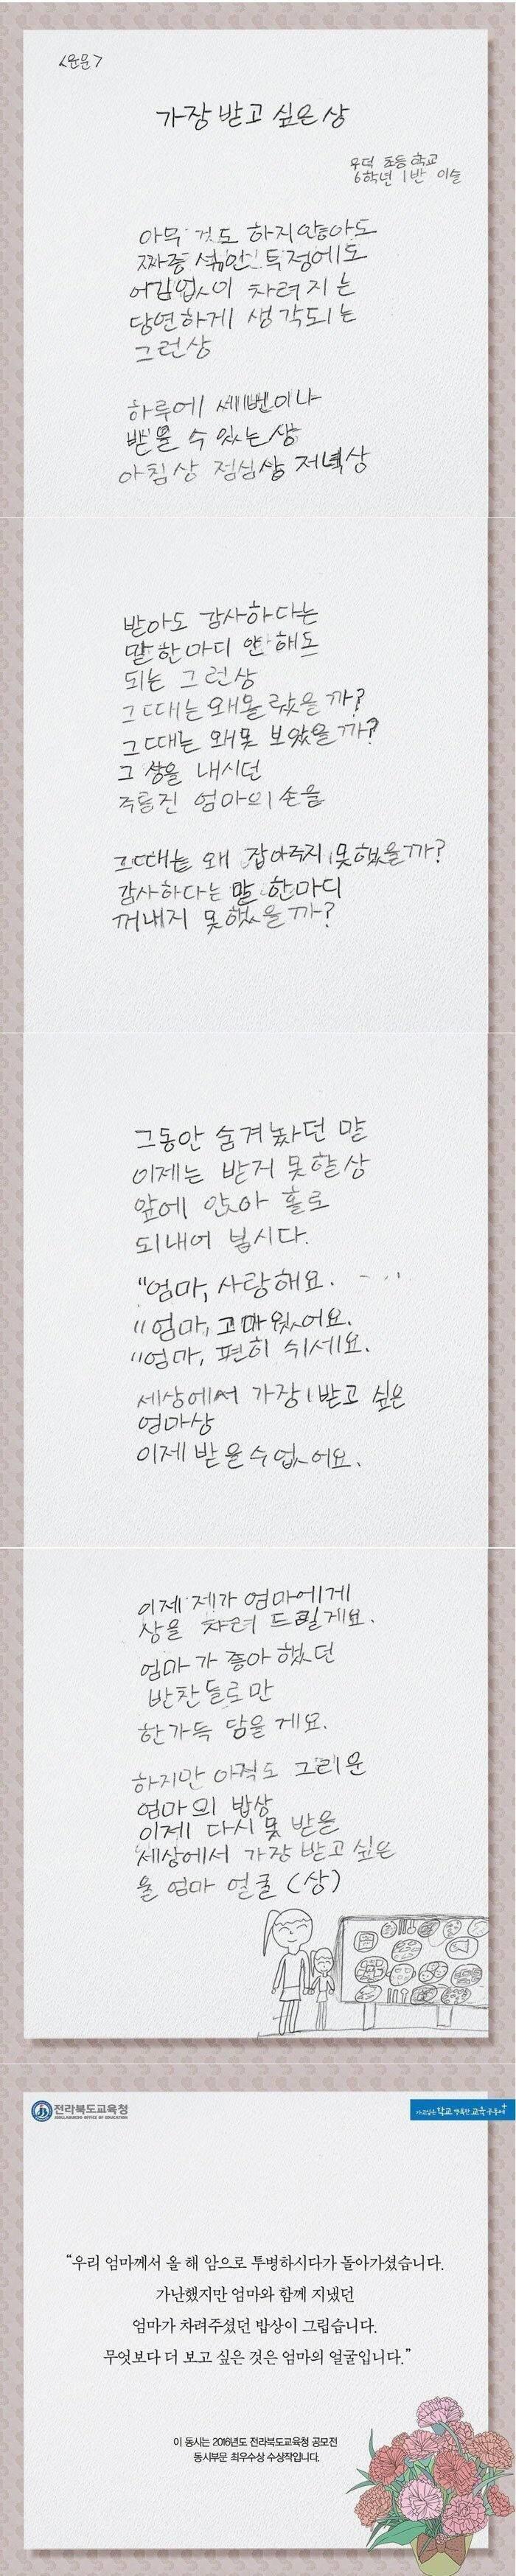 <운문>
가장 받고 싶은 상
우덕 초등학교
6학년 1반 이슬
아무 것도 하지 않아도
짜증 섞인 투정에도
어김없이 차려지는
당연하게 생각되는
그런상
하루에 세번이나
받을 수 있는 상
아침상 점심상 저녁상
받아도 감사하다는
말 한마디 안 해도
되는 그런상
그때는 왜 몰랐을까?
그때는 왜 못 보았을까?
그 상을 내시던
주름진 엄마의 손을
그때는 왜 잡아주지 못했을까?
감사하다는 말 한마디
꺼내지 못했을까?
그동안 숨겨놨던 말
이제는 받지 못할 상
앞에 앉아 홀로
되내어 봅시다.
"엄마, 사랑해요.
"엄마, 고마웠어요.
"엄마, 편히 쉬세요.
세상에서 가장 받고 싶은
엄마상
이제 받을수 없어요.
이제 제가 엄마에게
상을 차려 드릴게요.
엄마가 좋아했던
반찬들로만
한가득 담을게요.
하지만 아직도 그리운
엄마의 밥상
이제 다시 못 받을
세상에서 가장 받고 싶은
울 엄마 얼굴 (상)
전라북도교육청
JEOLLABUKDO OFFICE OF EDUCATION
가고싶은 학교 행복한 교육공동체
"우리 엄마께서 올 해 암으로 투병하시다가 돌아가셨습니다.
가난했지만 엄마와 함께 지냈던
엄마가 차려주셨던 밥상이 그립습니다.
무엇보다 더 보고 싶은 것은 엄마의 얼굴입니다."
이 동시는 2016년도 전라북도교육청 공모전
동시부문 최우수상 수상작입니다.